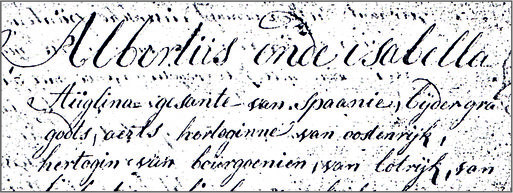 Albertus ende isabella
gesante van spaanie, bijder gra
gods, aerts hertoginne van oostenrijk,
hertogin van bourgoenien, van lotrijk, van